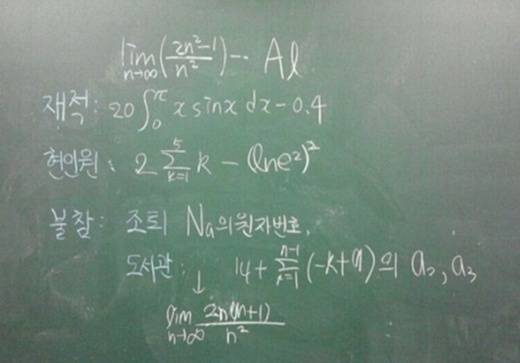 lim n→∞ (2n²-1 / n²) -- Al
재적: 20 ∫₀^π x sinx dx - 0.4
현인원: 2 ∑_{k=1}^{5} k - (lne²)²
불참: 조퇴 Na의 원자번호,
도서관: 14 + ∑_{k=1}^{n-1} (-k+9)의 a₂, a₃
↓
lim n→∞ 2n(n+1) / n²